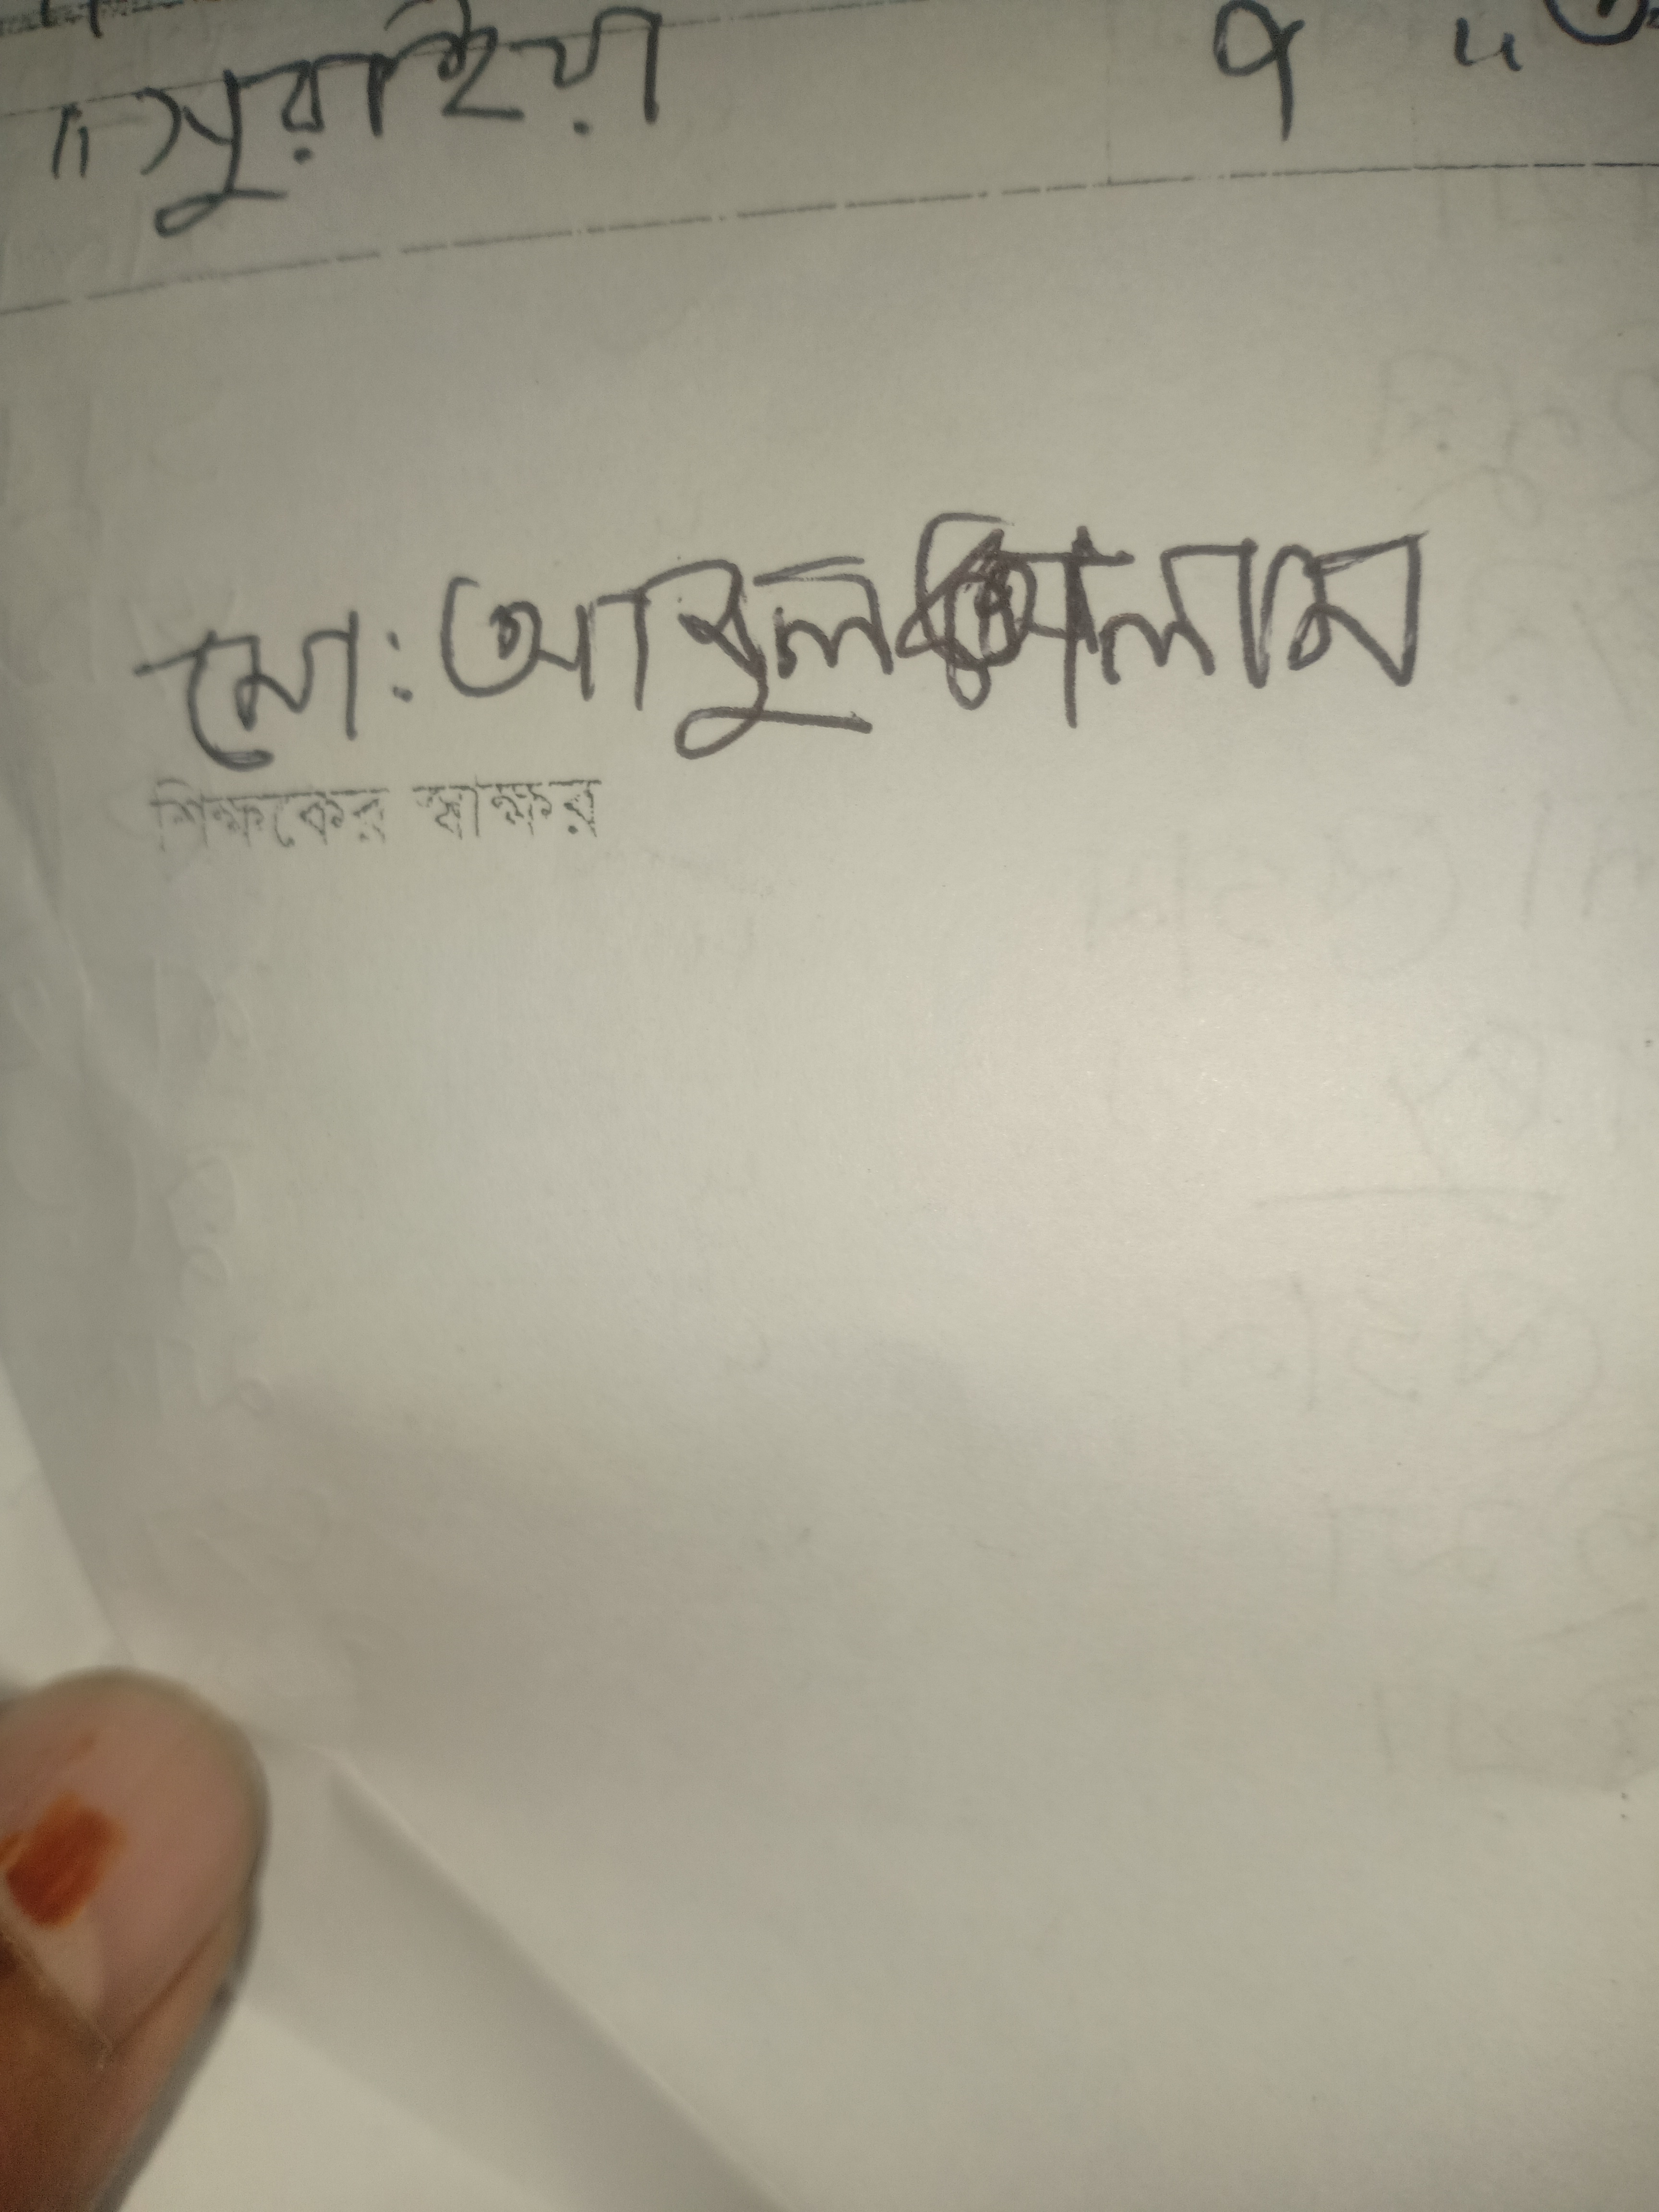 সুরাইয়া ৭ "
মো: আবুল আলাম
শিক্ষকের স্বাক্ষর